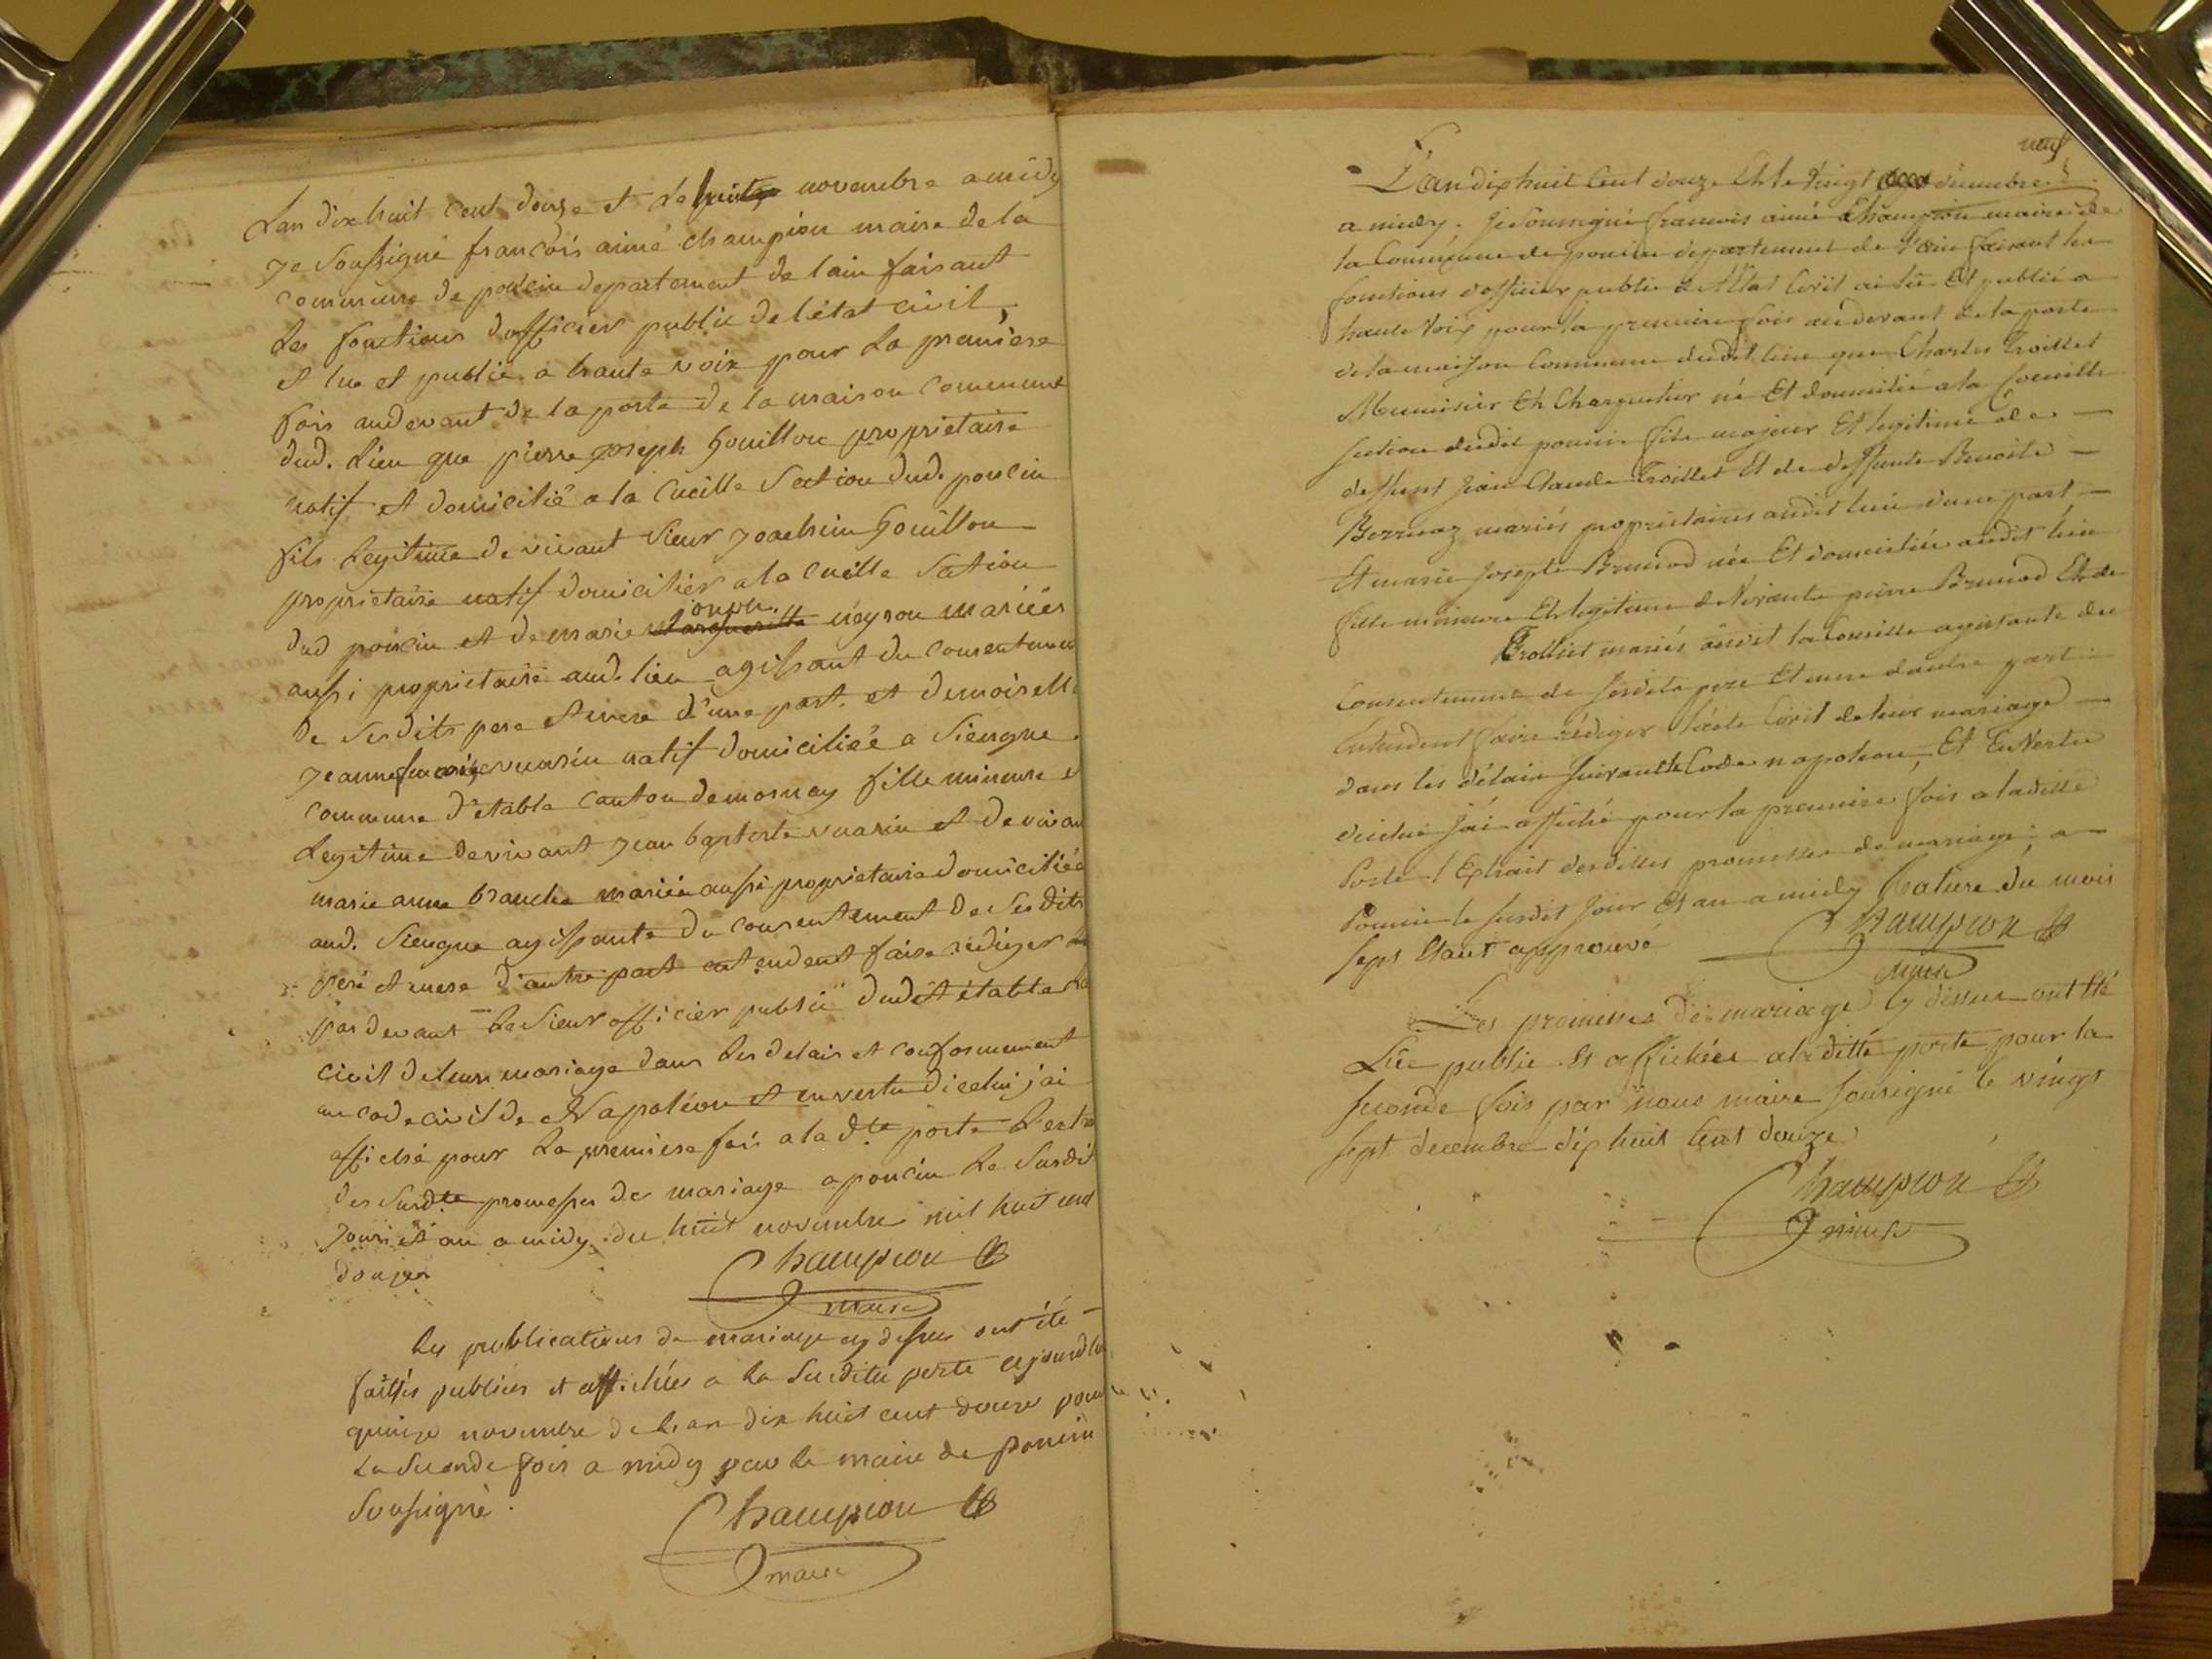 Lan dix huit cent douze et le huit novembre a midy
je soussigné francois aimé champion maire de la
commune de poncin departement de lain faisant
les fonctions dofficier public de létat civil,
et lue et publié a haute voix pour la premiere
fois audevant de la porte de la maison commune
dud. lieu que pierre joseph Gouillou proprietaire
natif et domicilié a la Cueille Section dud. poncin
fils legitime de vivant sieur joachim Gouillou
proprietaire natif domicilier a la cueille Section
dud poncin et de marie marguerite joseph neyrou mariées
aussi proprietaire aud. lieu agissant du consentement
de sesdits pere et mere d'une part. et demoiselle
jeanne francoise vuarin natif domiciliée a Siengne
commune d'étable canton demornay fille mineure et
legitime devivant jean baptiste vuarin et de vivan
marie anne branche mariée aussi proprietaire domiciliée
aud. Siengne agissante du consentement de ses dits
peré et mere d'autre part entendent faire rédiger
par devant le sieur officier public dudit étable
civil de leur mariage dans les delais et conformement
au code civil de Napoléon et en vertu dicelui j'ai
affiché pour la premiere fois a la dte porte l'extra
des susdte promesses de mariage a poncin le susdit
jour et an a midy du huit novembre mil huit cent
douze
Champion
maire
les publications de mariage cy dessus ont été
faittes publiées et affichées a la susditte porte ajourdhu
quinze novembre de lan dix huit cent douze pour
la seconde fois a midy par le maire de poncin
soussigné.
Champion
maire
neuf
L'an dix huit Cent douze Et le Vingt décembre
a midy. je soussigné francois aimé Champion maire de
la Commune de poncin département de l'ain faisant les
fonctions d'officier public de l'état Civil ai lu Et publié a
haute Voix pour la premiere fois au devant de la porte
de la maison Commune dudit lieu que Charles Troillet
Menuisier Et Charpentier né Et domicilié a la Coeuille
section dudit poncin fils majeur Et legitime de
deffunt jean Claude Troillet Et de deffunte Benoite
mariés proprietaires audit lieu d'une part
Et marie josephte Brunod née Et domiciliée audit lieu
fille mineure Et legitime de Vivants pierre Brunod Et de
Trolliet mariés audit la Coeuille agissante du
Consentement de sesdits pere Et mere d'autre part
Entendent faire rédiger l'acte Civil de leur mariage
dans les délais suivant le Code napoleon, Et En Vertu
dicelui j'ai affiché pour la premiere fois a la ditte
Porte l'Extrait desdittes promesses de mariage, a
Poncin le susdit jour Et an a midy Rature du mois
sept Etant approuvé
Champion
maire
Les promesses de mariage cy dessus ont été
Lüe publie Et affichées a la ditte porte pour la
seconde fois par nous maire sousigné le vingt
sept decembre dix huit Cent douze
Champion
maire